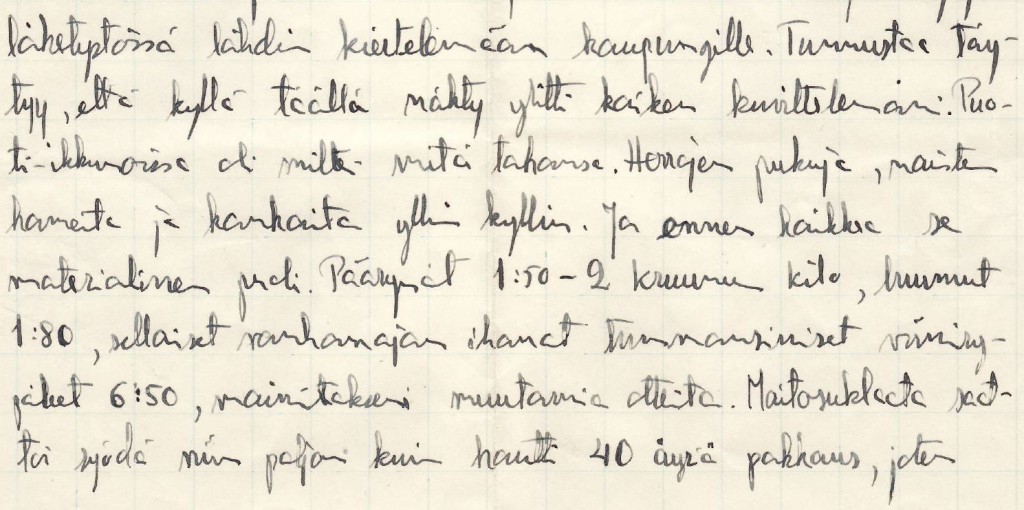 lähetystössä lähdin kiertelemään kaupungille. Tunnustaa täy-
tyy, että kyllä täällä nähty ylitti kaiken kuvittelemani. Puo-
ti-ikkunoissa oli miltei mitä tahansa. Herrojen pukuja, naisten
hameita ja kankaita yllin kyllin. Ja ennen kaikkea se
materialinen puoli. Päärynät 1:50-2 kruunua kilo, luumut
1:80, sellaiset vanhanajan ihanat tummansiniset viiniry-
päleet 6:50, mainitakseni muutamia otteita. Maitosuklaata saat-
toi syödä niin paljon kuin halutti 40 äyriä pakkaus, joten